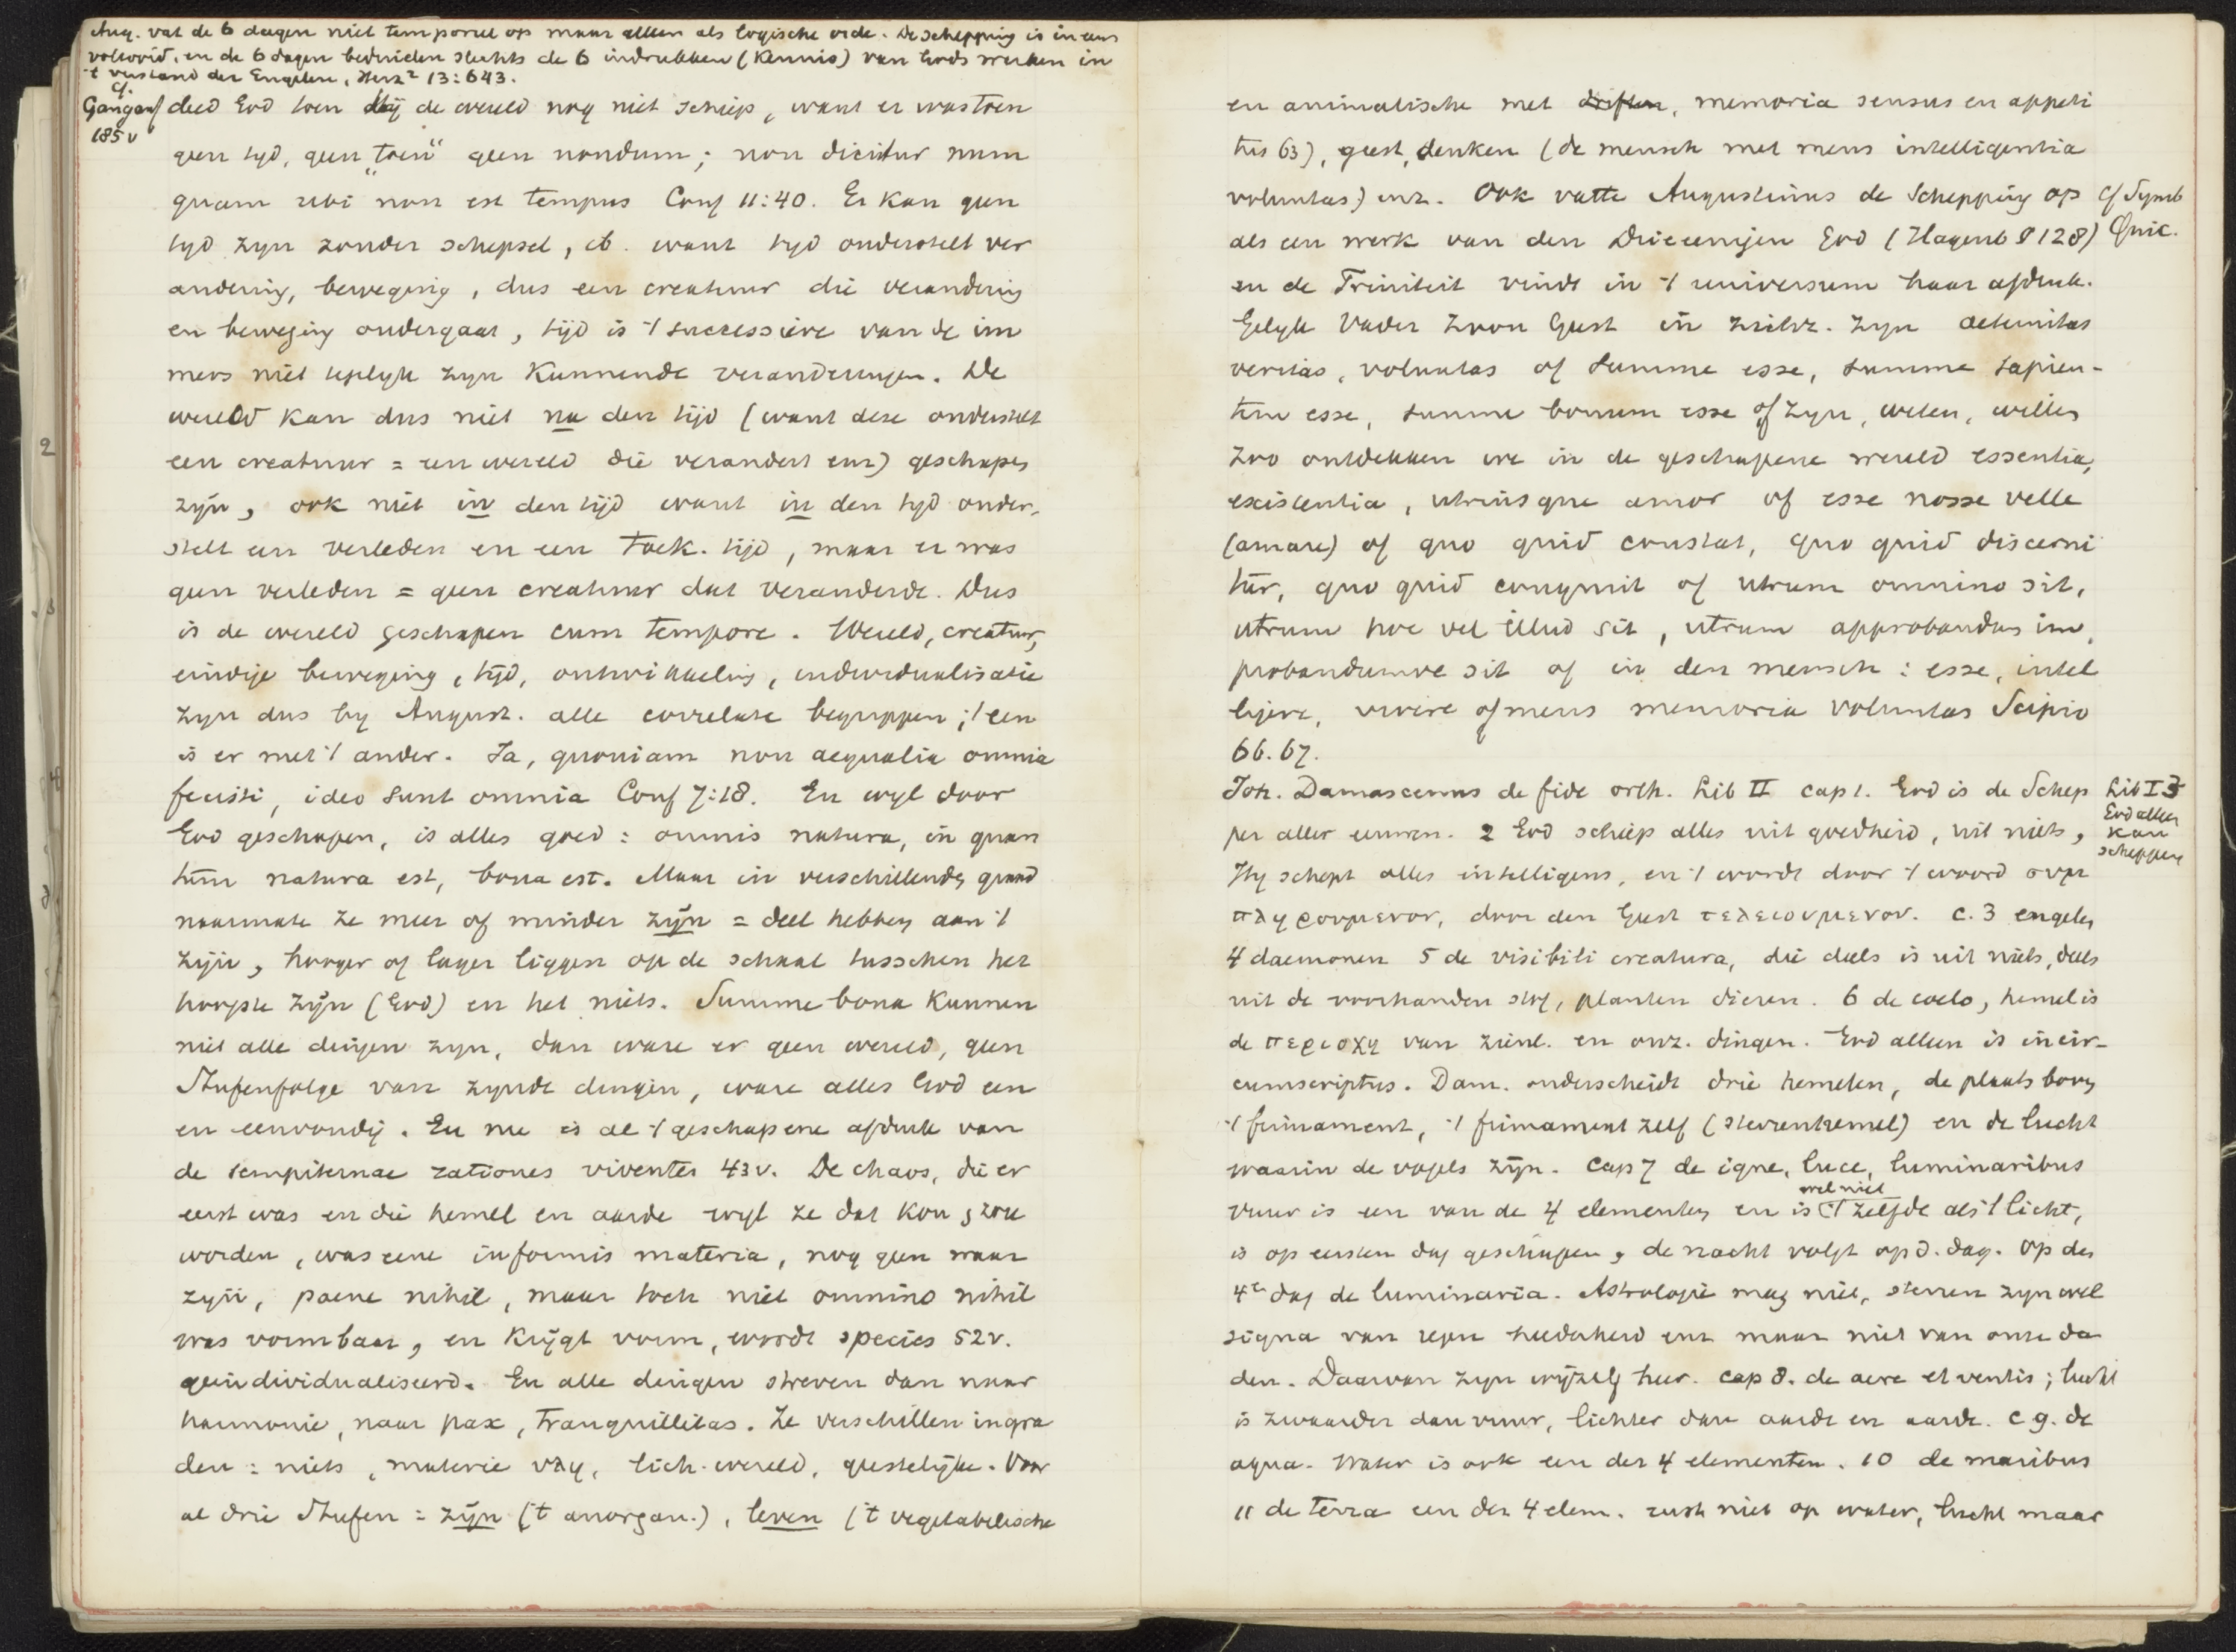 Aug. vat de 6 dagen niet temporeel op maar alleen als logische orde. De schepping is in eens
voltooid, en de 6 dagen beduiden slechts de 6 indrukken (kennis) van Gods werken in
't verstand der Engelen, Herz² 13:643.
cf.
Gangauf
185v
deed God toen Hij de wereld nog niet schiep, want er was toen
geen tijd, geen "toen" geen nondum; non dicitur num
quam ubi non est tempus Conf 11:40. Er kan geen
tijd zijn zonder schepsel, ib. want tijd onderstelt ver
andering, beweging, dus een creatuur die verandering
en beweging ondergaat, tijd is 't successieve van de im
mers niet tegelijk zijn kunnende veranderingen. De
wereld kan dus niet na den tijd (want deze onderstelt
een creatuur = een wereld die verandert enz) geschapen
zijn, ook niet in den tijd want in den tijd onder-
stelt een verleden en een toek. tijd, maar er was
geen verleden = geen creatuur dat veranderde. Dus
is de wereld geschapen cum tempore. Wereld, creatuur,
eindige beweging, tijd, ontwikkeling, individualisatie
zijn dus bij August. alle correlate begrippen; 't een
is er met 't ander. Ja, quoniam non aequalia omnia
fecisti, ideo sunt omnia Conf 7:18. En wijl door
God geschapen, is alles goed: omnis natura, in quan
tum natura est, bona est. Maar in verschillenden graad
naarmate ze meer of minder zijn = deel hebben aan 't
zijn, hooger of lager liggen op de schaal tusschen het
hoogste zijn (God) en het niets. Summe bona kunnen
niet alle dingen zijn, dan ware er geen wereld, geen
Stufenfolge van zijnde dingen, ware alles God een
en eenvoudig. En nu is al 't geschapene afdruk van
de sempiternae rationes viventes 43v. De chaos, die er
eerst was en die hemel en aarde wijl ze dat kon, zou
worden, was eene informis materia, nog geen waar
zijn, paene nihil, maar toch niet omnino nihil
was vormbaar, en krijgt vorm, wordt species 52v.
geindividualiseerd. En alle dingen streven dan naar
harmonie, naar pax, tranquillitas. Ze verschillen in gra
den: niets, materie υλη, lich. wereld, geestelijke. Voor
al drie Stufen: zijn ('t anorgan.), leven ('t vegetabilische
en animalische met driften, memoria sensus en appeti
tus 63), geest, denken (de mensch met mens intelligentia
voluntas) enz. Ook vatte Augustinus de Schepping op
cf Symb
Quic.
als een werk van den Drieeenigen God (Hagenb § 128)
en de Triniteit vindt in 't universum haar afdruk.
Gelijk Vader Zoon Geest in zichz. zijn aeternitas
veritas, voluntas of summe esse, summe sapien-
tem esse, summe bonum esse of zijn, weten, willen
zoo ontdekken we in de geschapene wereld essentia,
existentia, utriusque amor of esse nosse velle
(amare) of quo quid constat, quo quid discerni
tur, quo quid congruit of utrum omnino sit,
utrum hoc vel illud sit, utrum approbandum im
probandumve sit of in den mensch: esse, intel
ligere, vivere of mens memoria voluntas Scipio
66.67.
Joh. Damascenus de fide orth. Lib II cap 1. God is de Schep
Lib I 3
God alleen
kan
scheppen
per aller eeuwen. 2 God schiep alles uit goedheid, uit niets,
Hij schept alles intelligens, en 't wordt door 't woord συμ
πληρουμενον, door den Geest τελειουμενον. c. 3 engelen
4 daemonen 5 de visibili creatura, die deels is uit niets, deels
uit de voorhanden stof, planten dieren. 6 de coelo, hemel is
de περιοχη van zienl. en onz. dingen. God alleen is incir-
cumscriptus. Dam. onderscheidt drie hemelen, de plaats boven
't firmament, 't firmament zelf (sterrenhemel) en de lucht
waarin de vogels zijn. Cap 7 de igne, luce, luminaribus
wel niet
vuur is een van de 4 elementen en is 't zelfde als 't licht,
is op eersten dag geschapen, de nacht volgt op d. dag. Op den
4en dag de luminaria. Astrologie mag niet, sterren zijn wel
signa van regen helderheid enz maar niet van onze da
den. Daarvan zijn wijzelf heer. cap 8. de aere et ventis; lucht
is zwaarder dan vuur, lichter dan aarde en aarde. c 9. de
aqua. Water is ook een der 4 elementen. 10 de maribus
11 de terra een der 4 elem. rust niet op water, lucht maar